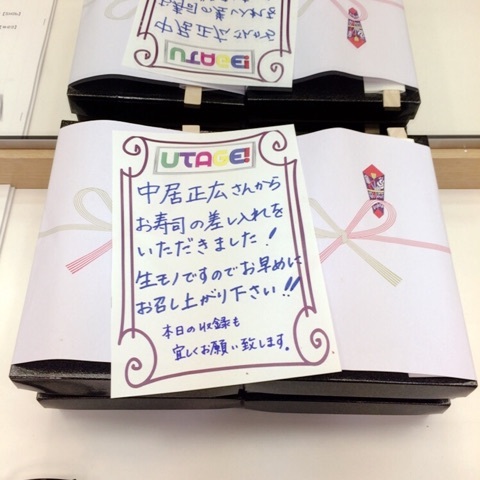 お寿司の差し入れを
中居正広さんから
UTAGE!
UTAGE!
中居正広さんから
お寿司の差し入れを
いただきました!
生モノですのでお早めに
お召し上がり下さい!!
本日の収録も
宜しくお願い致します。